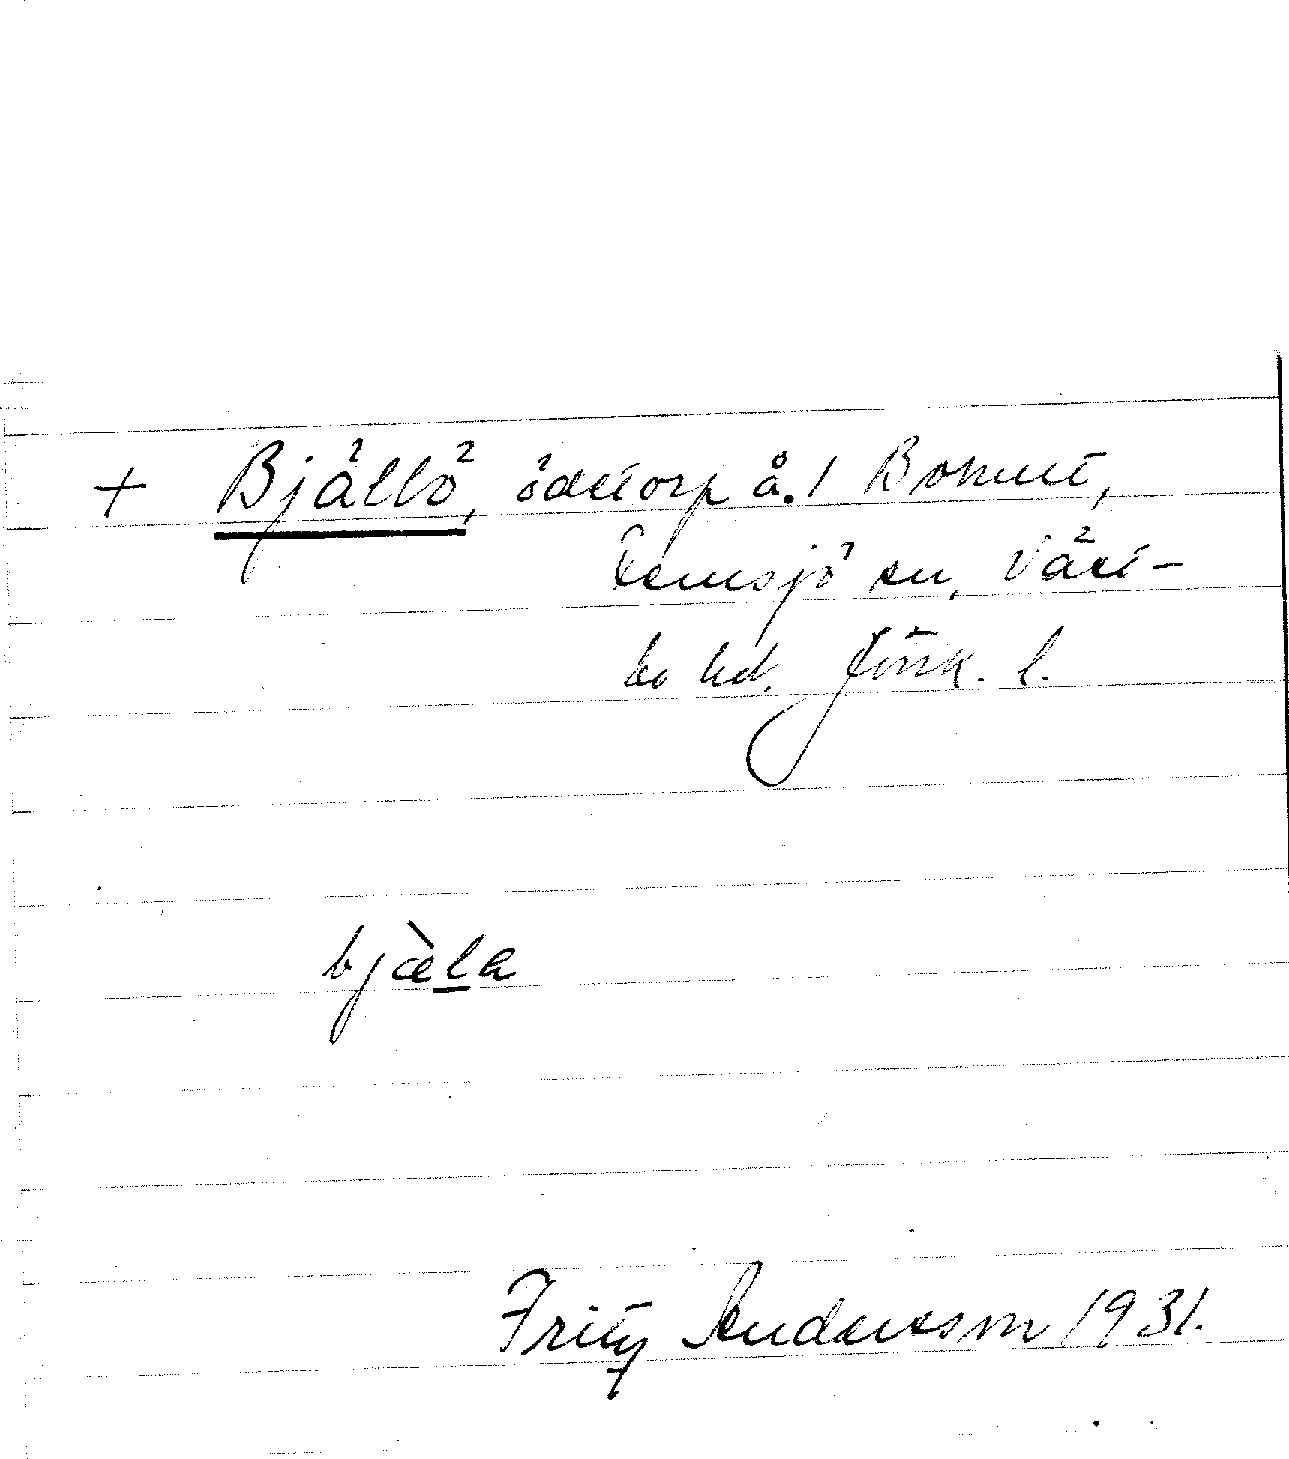 + Bjällö, ödetorp å. 1 Bohult,
Femsjö sn, Väst-
bo hd. Jönk. l.
bjæ̀la
Fritz Andersson 1931.